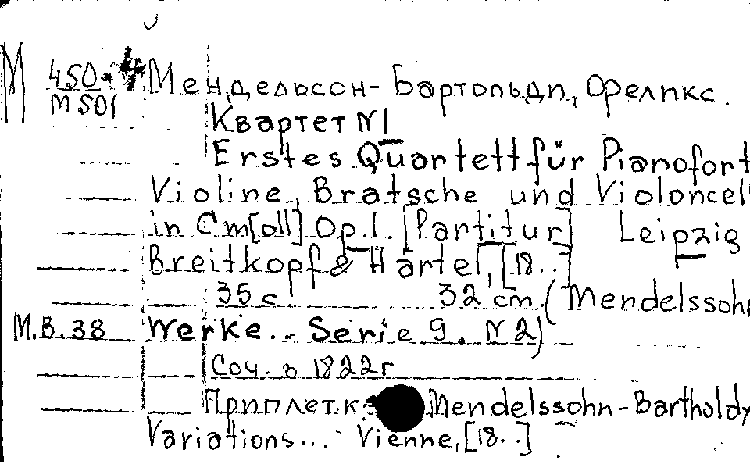 M 450.4 Мендельсон-Бартольди, Феликс.
M501 Квартет N1
Erstes Quartett für Pianofort
Violine, Bratsche und Violoncel
in C m[oll] Op.1. [Partitur] Leipzig
Breitkopf & Härtel, [18..]
35 с 32 cm. (Mendelssohn
M.B.38 Werke... Serie 9. N2)
Соч. в 1822г
Приплет. к Mendelssohn-Bartholdy
Variations... Vienne, [18..]